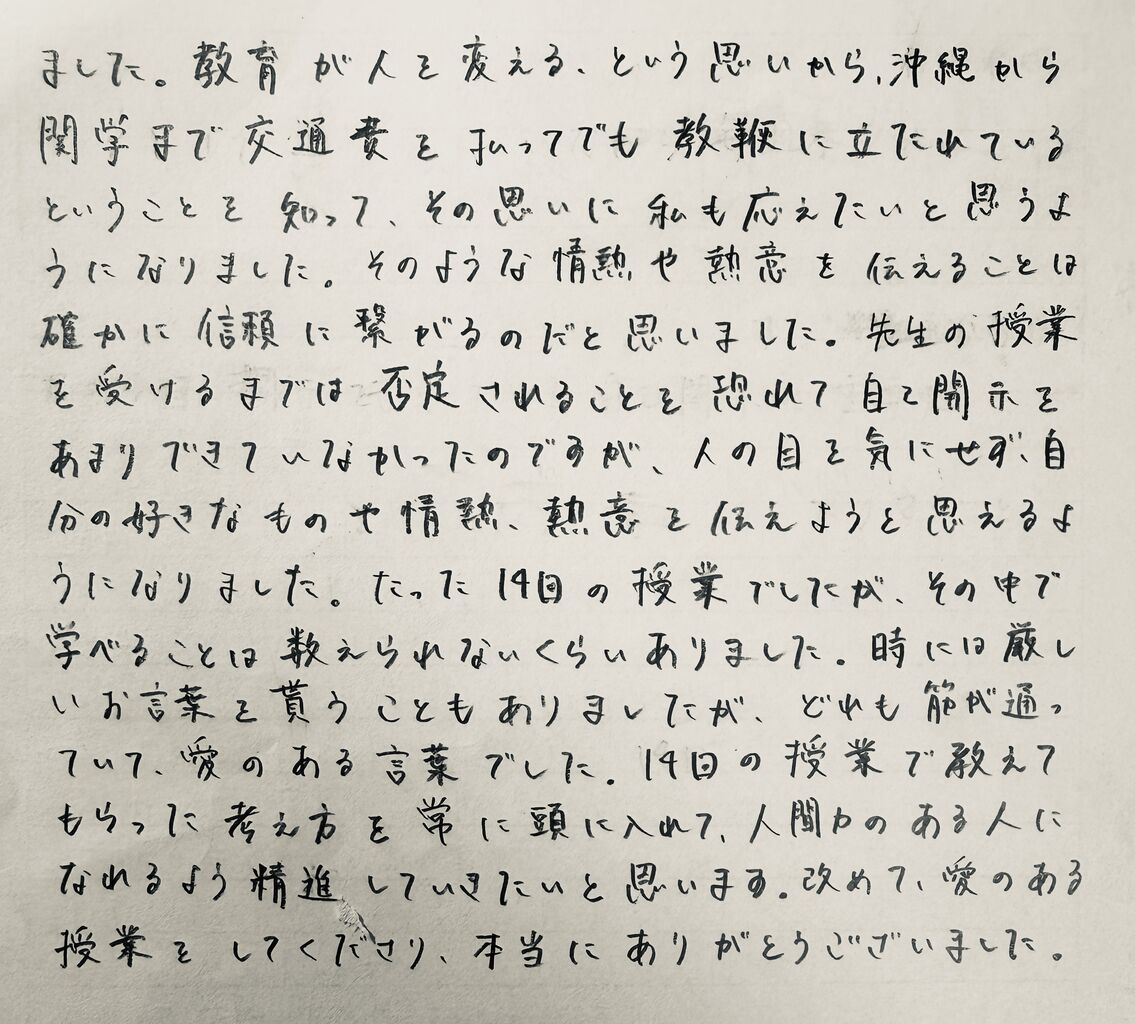 ました。教育が人を変える、という思いから、沖縄から
関学まで交通費を払ってでも教鞭に立たれている
ということを知って、その思いに私も応えたいと思うよ
うになりました。そのような情熱や熱意を伝えることは
確かに信頼に繋がるのだと思いました。先生の授業
を受けるまでは否定されることを恐れて自己開示を
あまりできていなかったのですが、人の目を気にせず、自
分の好きなものや情熱、熱意を伝えようと思えるよ
うになりました。たった14回の授業でしたが、その中で
学べることは数えられないくらいありました。時には厳し
いお言葉を貰うこともありましたが、どれも筋が通っ
ていて、愛のある言葉でした。14回の授業で教えて
もらった考え方を常に頭に入れて、人間力のある人に
なれるよう精進していきたいと思います。改めて、愛のある
授業をしてくださり、本当にありがとうございました。